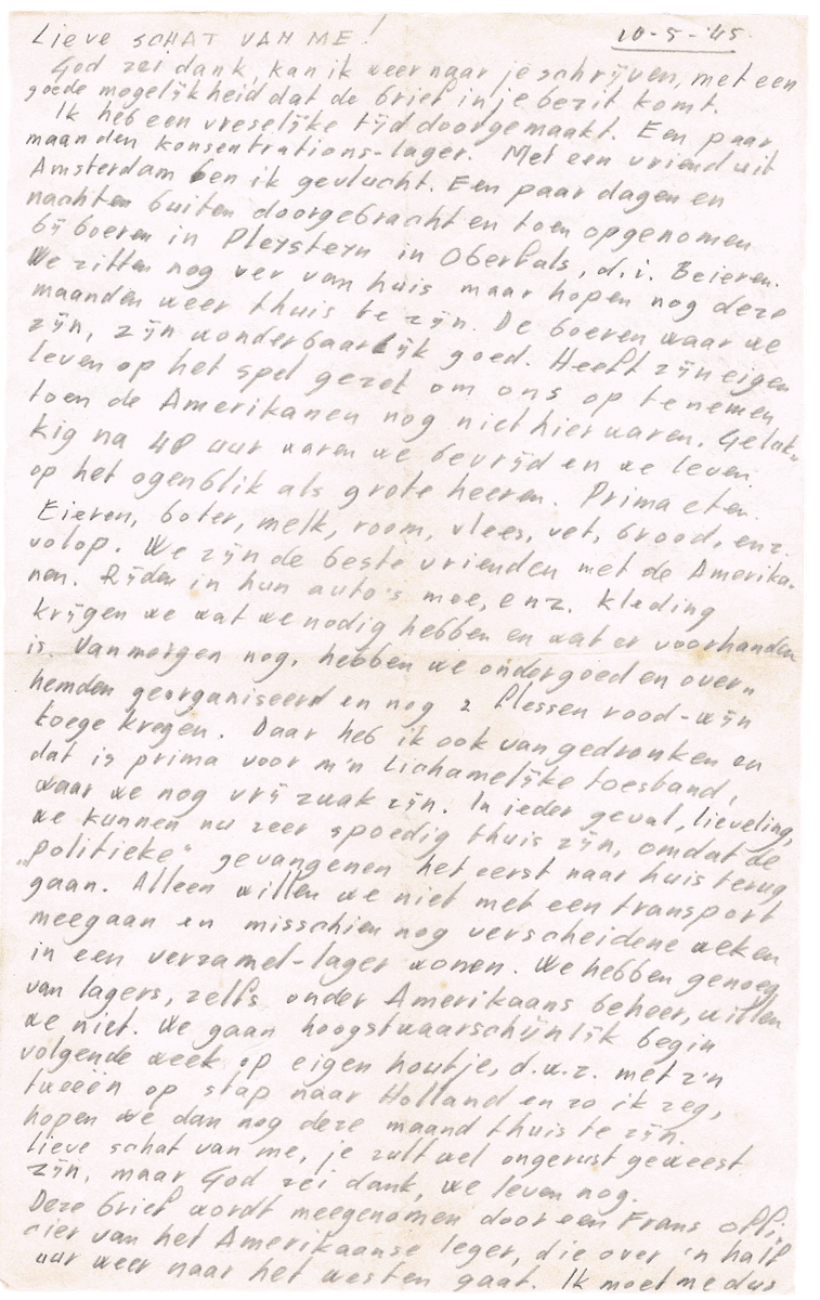 Lieve SCHAT VAN ME! 10-5-'45.
God zei dank, kan ik weer naar je schrijven, met een
goede mogelijkheid dat de brief in je bezit komt.
Ik heb een vreselijke tijd doorgemaakt. Een paar
maanden konsentrations-lager. Met een vriend uit
Amsterdam ben ik gevlucht. Een paar dagen en
nachten buiten doorgebracht en toen opgenomen
bij boeren in Pleysteyn in Oberfals, d.i. Beieren.
We zitten nog ver van huis maar hopen nog deze
maanden weer thuis te zijn. De boeren waar we
zijn, zijn wonderbaarlijk goed. Heeft zijn eigen
leven op het spel gezet om ons op te nemen
toen de Amerikanen nog niet hier waren. Geluk„
kig na 48 uur waren we bevrijd en we leven
op het ogenblik als grote heeren. Prima eten.
Eieren, boter, melk, room, vlees, vet, brood, enz.
volop. We zijn de beste vrienden met de Amerika-
nen. Rijden in hun auto's mee, enz. Kleding
krijgen we wat we nodig hebben en wat er voorhanden
is. Vanmorgen nog, hebben we ondergoed en over„
hemden georganiseerd en nog 2 flessen rood-wijn
toege kregen. Daar heb ik ook van gedronken en
dat is prima voor m'n lichamelijke toestand,
waar we nog vrij zwak zijn. In ieder geval, lieveling,
we kunnen nu zeer spoedig thuis zijn, omdat de
„politieke" gevangenen het eerst naar huis terug
gaan. Alleen willen we niet met een transport
meegaan en misschien nog verscheidene weken
in een verzamel-lager wonen. We hebben genoeg
van lagers, zelfs onder Amerikaans beheer, willen
we niet. We gaan hoogstwaarschijnlijk begin
volgende week op eigen houtje, d.w.z. met z'n
tweeën op stap naar Holland en zo ik zeg,
hopen we dan nog deze maand thuis te zijn.
Lieve schat van me, je zult wel ongerust geweest
zijn, maar God zei dank, we leven nog.
Deze brief wordt meegenomen door een Frans offi„
cier van het Amerikaanse leger, die over 'n half
uur weer naar het westen gaat. Ik moet me dus